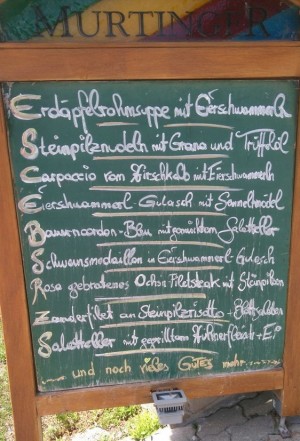 MURTINGER
Erdäpfelrahmsuppe mit Eierschwammerln
Steinpilznudeln mit Grana und Trüffelöl
Carpaccio vom Hirschkalb mit Eierschwammerln
Eierschwammerl-Gulasch mit Semmelknödel
Bauerncordon-Bleu mit gemischtem Salatteller
Schweinsmedaillon in Eierschwammerl-Gulasch
Rosa gebratenes Ochsen Filetsteak mit Steinpilzen
Zanderfilet an Steinpilzrisotto + Blattsalaten
Salatteller mit gegrilltem Hühnerfilet + Ei
und noch vieles Gutes mehr